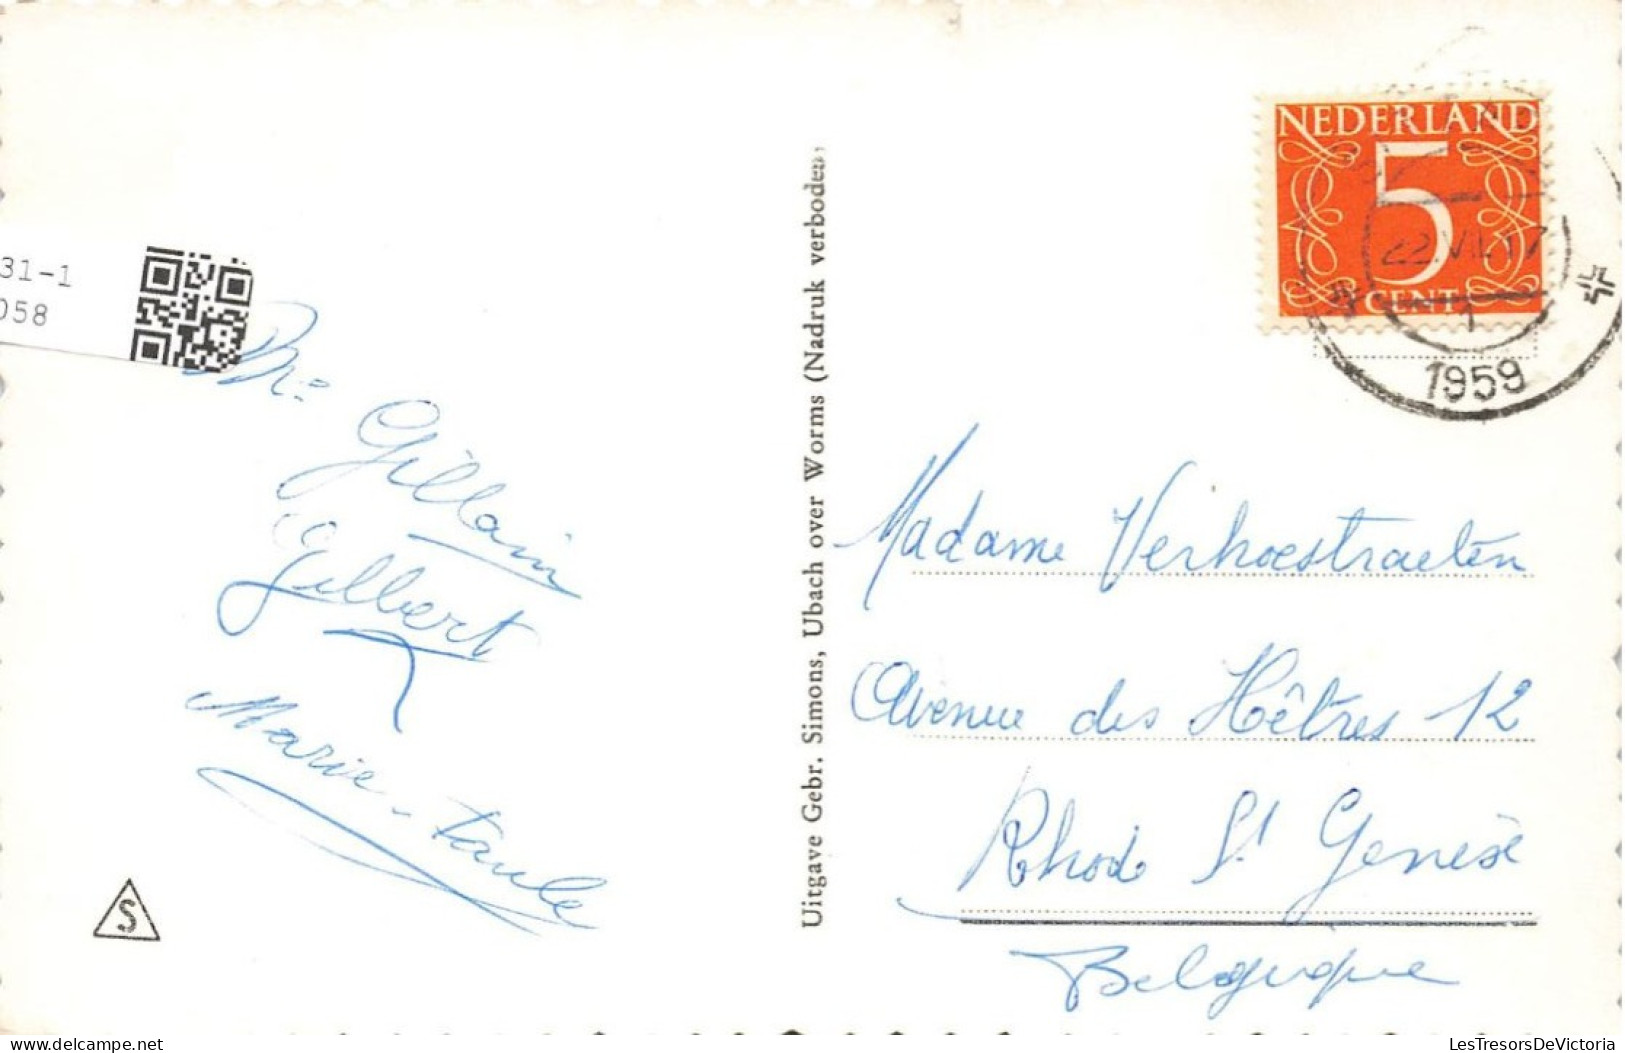 31-1
058
Mr Gillain
Gilbert
Marie-Paule
S
Uitgave Gebr. Simons, Ubach over Worms (Nadruk verboden)
NEDERLAND
5
CENT
22.VII.17
1
1959
Madame Verhoestraeten
Avenue des Hêtres 12
Rhode St Genèse
Belgique
www.delcampe.net
LesTresorsDeVictoria